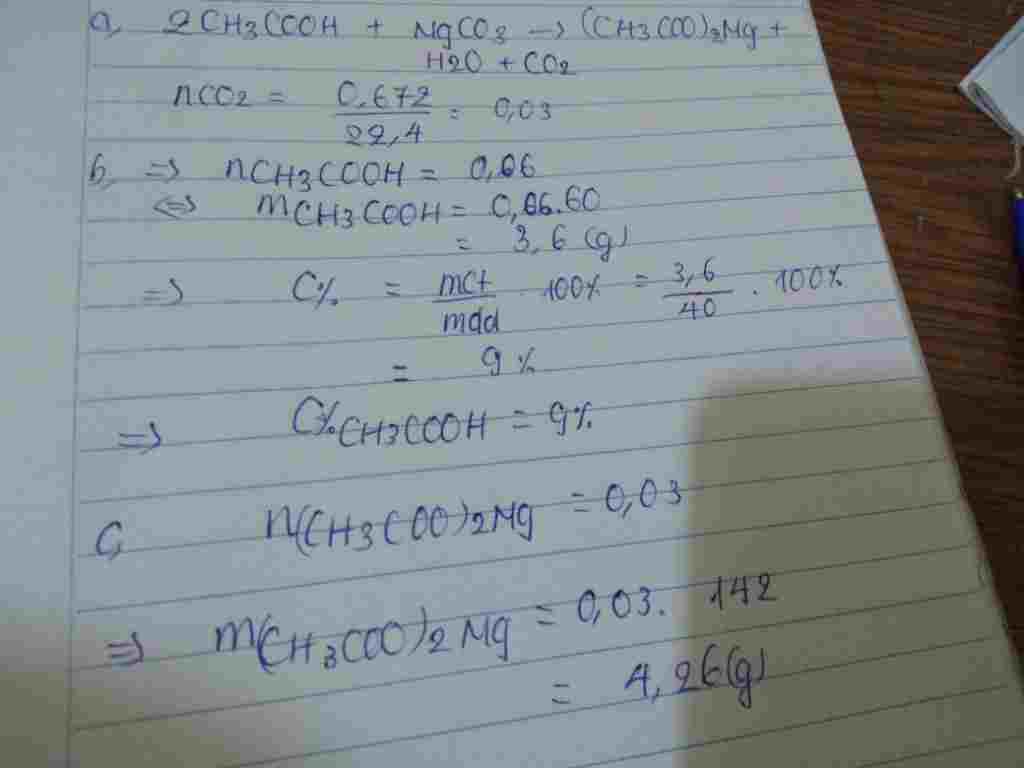 a, 2CH3COOH + MgCO3 → (CH3COO)2Mg +
H2O + CO2
nCO2 = 0,672/22,4 = 0,03
b, => nCH3COOH = 0,06
<=> mCH3COOH = 0,06.60
= 3,6 (g)
=> C% = mct/mdd . 100% = 3,6/40 . 100%
= 9%
=> C%CH3COOH = 9%
C, n(CH3COO)2Mg = 0,03
=> m(CH3COO)2Mg = 0,03. 142
= 4,26(g)